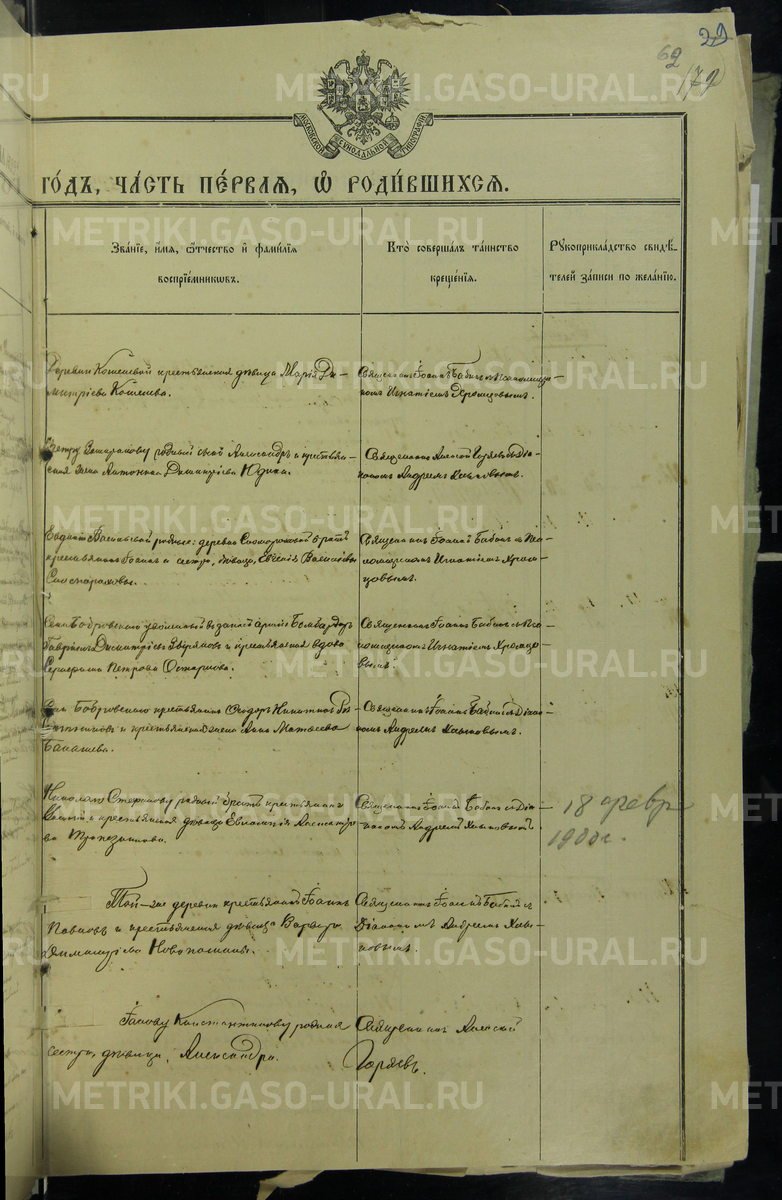 29
62
179
МОСКОВСКОЙ СѴНОДАЛЬНОЙ ТИПОГРАФІИ
METRIKI.GASO-URAL.RU
го́дъ, ча́сть пе́рваѧ, ѡ҆ роди́вшихсѧ.
Зва́нїе, и҆́мѧ, ѻ҆́тчество и҆ фами́лїѧ
воспрїе́мникѡвъ.
Кто̀ соверша́лъ та́инство
креще́нїѧ.
Рꙋкоприкла́дство свидѣ́-
телей за́писи по жела́нїю.
Деревни Кошелевой крестьянская дѣвица Марія Ди-
митріева Кошелева.
Священникъ Іоаннъ Бабинъ съ псаломщи-
комъ Игнатіемъ Хромцовымъ.
Петру родной сынъ Александръ и крестьян-
ская жена Антонина Димитріева Юдина.
Священникъ Алексій Горяевъ съ діа-
кономъ Андреемъ
Евдокіи Васильевой родные: деревни братъ
крестьянинъ Іоаннъ и сестра, дѣвица, Евгенія Васильевы
Священникъ Іоаннъ Бабинъ съ пса-
ломщикомъ Игнатіемъ Хром-
цовымъ.
Села Бобровскаго уволенный въ запасъ арміи Бомбардиръ
Гавріилъ Димитріевъ и крестьянская вдова
Серафима Петрова
Священникъ Іоаннъ Бабинъ съ пса-
ломщикомъ Игнатіемъ Хромцо-
вымъ.
Села Бобровскаго крестьянинъ Ѳеодоръ Никитинъ
и крестьянская жена Анна Матѳеева
Балашева.
Священникъ Іоаннъ Бабинъ съ діако-
номъ Андреемъ
Николаю Стефанову родной братъ крестьянинъ
и крестьянская дѣвица Евлампія
Священникъ Іоаннъ Бабинъ съ діа-
кономъ Андреемъ
18 февр
1900 г.
Той-же деревни крестьянинъ Іоаннъ
Павловъ и крестьянская дѣвица Варвара
Димитріева
Священникъ Іоаннъ Бабинъ съ
Діакономъ Андреемъ
Іакову Константинову родная
сестра, дѣвица, Александра.
Священникъ Алексій
Горяевъ.